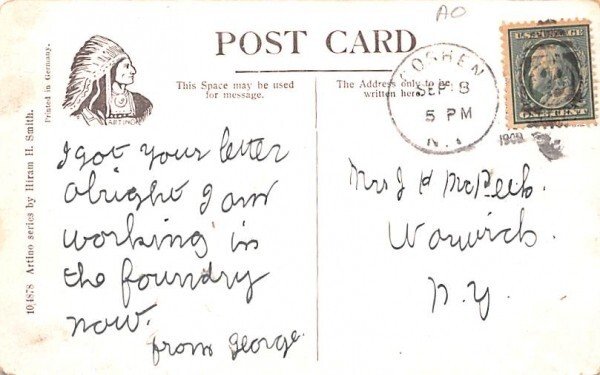 AO
POST CARD
This Space may be used
for message.
The Address only to be
written here.
GOSHEN
SEP 8
5 PM
N.Y.
1909
ARTINO
Printed in Germany.
104878 Artino series by Hiram H. Smith.
I got your letter
alright I am
working in
the foundry
now.
from George.
Mrs J H McPeck.
Warwick.
N.Y.